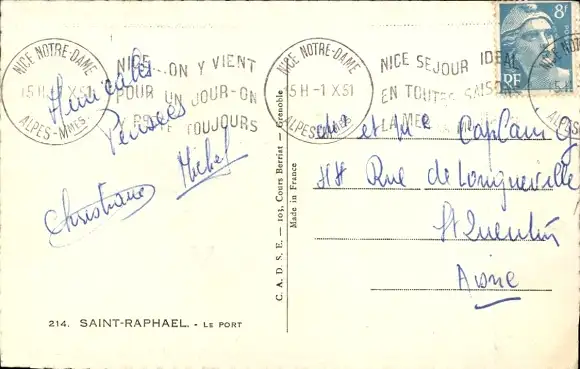 NICE NOTRE-DAME
15H-1 X.51
ALPES-MMES.
NICE...ON Y VIENT
POUR UN JOUR-ON
TOUJOURS
NICE NOTRE-DAME
15H-1 X.51
ALPES-MMES.
NICE SEJOUR IDEAL
EN TOUTES SAISONS
LA MER
8F
RF
NICE NO
Amicales
Pensées
Michel
Christiane
C. A. D. S. E. — 103, Cours Berriat — Grenoble
Made in France
et Mme Caplain
44 Rue de Longueville
St Quentin
Aisne
214. SAINT-RAPHAEL. - LE PORT